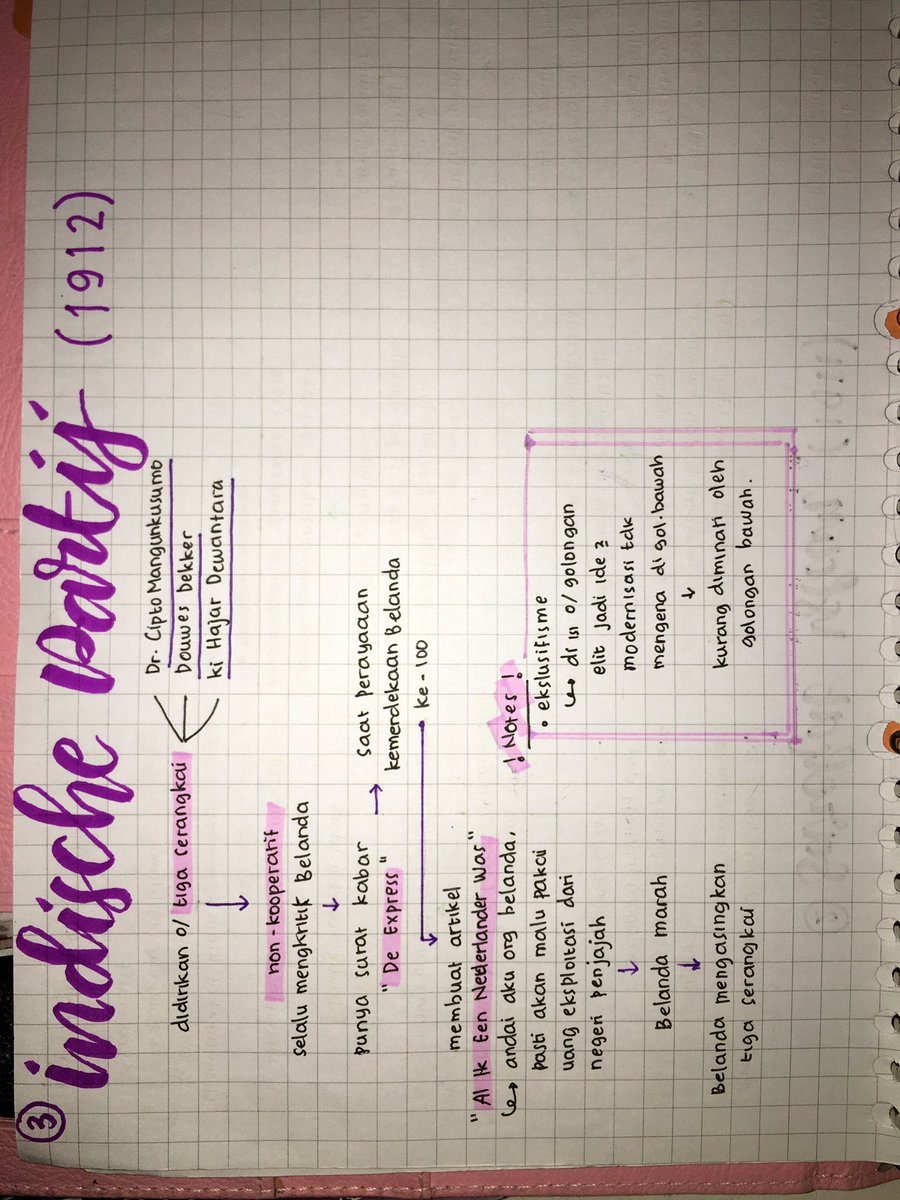 ③ indische partij (1912)
didirikan o/ tiga serangkai
Dr. Cipto Mangunkusumo
Douwes Dekker
ki Hajar Dewantara
non-kooperatif
selalu mengkritik Belanda
punya surat kabar
"De Express"
saat perayaaan
kemerdekaan Belanda
ke-100
membuat artikel
"Al Ik Een Nederlander Was"
andai aku org belanda,
pasti akan malu pakai
uang eksploitasi dari
negeri penjajah
Belanda marah
Belanda mengasingkan
tiga serangkai
! Notes !
• ekslusifisme
di isi o/ golongan
elit jadi ide2
modernisasi tdk
mengena di gol. bawah
kurang diminati oleh
golongan bawah.